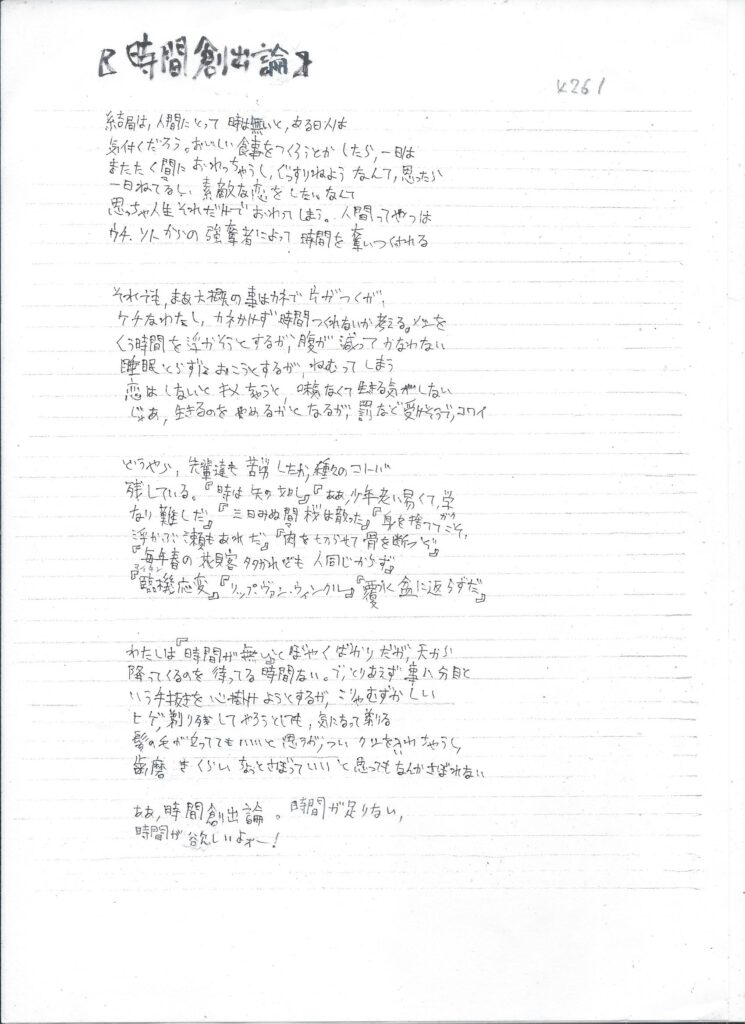 【時間創出論】
K261
結局は、人間にとって 時は無いと、ある日人は
気付くだろう。おいしい食事をつくろうとか したら、一日は
またたく間に おわっちゃうし、ぐっすりねよう なんて、思ったら
一日ねてるし、素敵な恋を したい。なんて
思っちゃ人生 それだけで おわってしまう。人間ってやつは
ウチ、ソトからの 強奪者によって 時間を 奪いつけれる
それでも、まあ大概の事はカネで 片がつくが、
ケチなわたし、カネかけず 時間つくれないか 考える。メシを
くう時間を 浮かそうとするが、腹が 減って かなわない
睡眠 とらずに おこうとするが、ねむって しまう
恋は しないと キメちゃうと、味気なくて 生きる気がしない
じゃあ、生きるのを やめるか、となるが、罰など受けそうで、コワイ
どうやら、先輩達も 苦労したか、種々のコトバ
残している。『時は 矢の如し』『ああ、少年老い易くて、学
なり難しだ』『三日みぬ間 桜は散った』『身を捨ててこそ、
浮かぶ瀬もあれだ』『肉を切らせて 骨を断つぞ』
『毎年春の 花見客 タタかれども 人同じからず』
『臨機応変』『リップ・ヴァン・ウィンクル』『覆水 盆に返らずだ』
わたしは『時間が無い』と ぼやくばかり だが、天から
降ってくるのを 待ってる 時間ない。で、とりあえず 事八分目と
いう手抜きを 心掛けようとするが、こりゃむずかしい
ヒゲ、剃り残してやろうとしても、気になって 剃る
髪の毛が 立ってても いいと 思うが、つい クシを入れちゃうし、
歯磨きくらい ちょっとさぼっていい と思っても なんか さぼれない
ああ、時間創出論 。時間が足りない、
時間が 欲しいよォー！